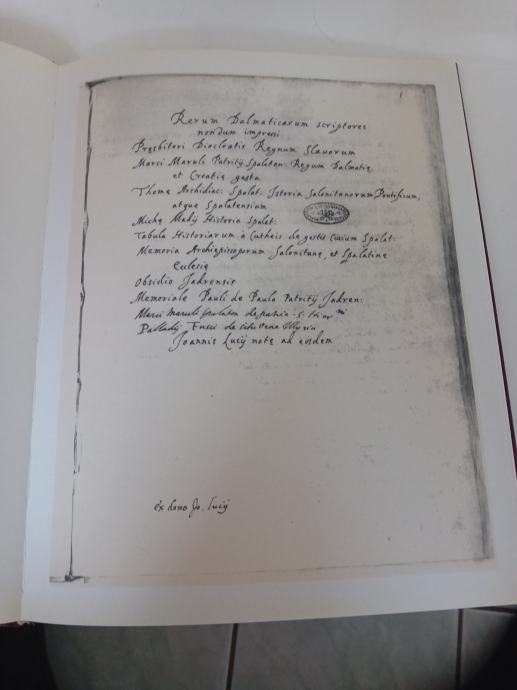 1
Rerum Dalmaticarum scriptores
nondum impressi
Presbiteri Diocleatis Regnum Slavorum
Marci Maruli Patritij Spalaten: Regum Dalmatię
et Croatię gesta
Thomę Archidiac: Spalat: Istoria Salonitanorum Pontificum,
atque Spalatensium
Michę Madij Historia Spalat:
Tabula Historiarum à Cutheis de gestis Civium Spalat:
Memoria Archiepiscoporum Salonitanę, et Spalatine
Eclesię
Obsidio Jadrensis
Memoriale Pauli de Paulo Patritij Jadren:
Marci Maruli Spalaten de patria
Palladij Fusci de situ Orae Illyrici
Joannis Lucij notę ad eosdem
ex dono Jo. Lucij